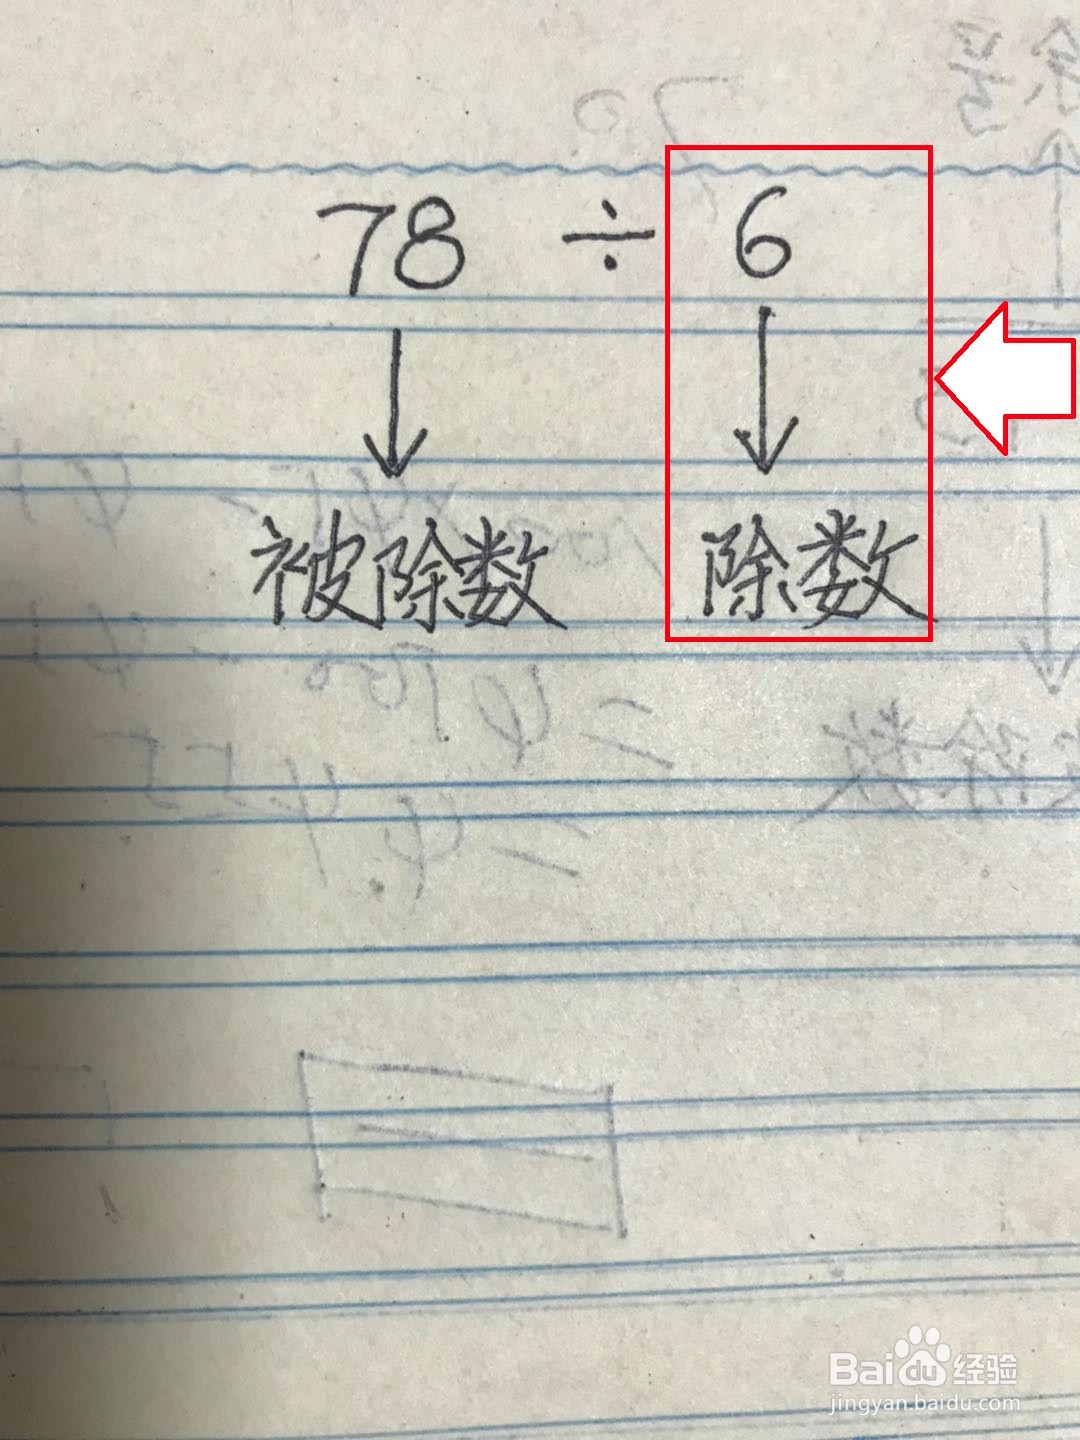 78 ÷ 6
被除数 除数
Baidu 经验
jingyan.baidu.com